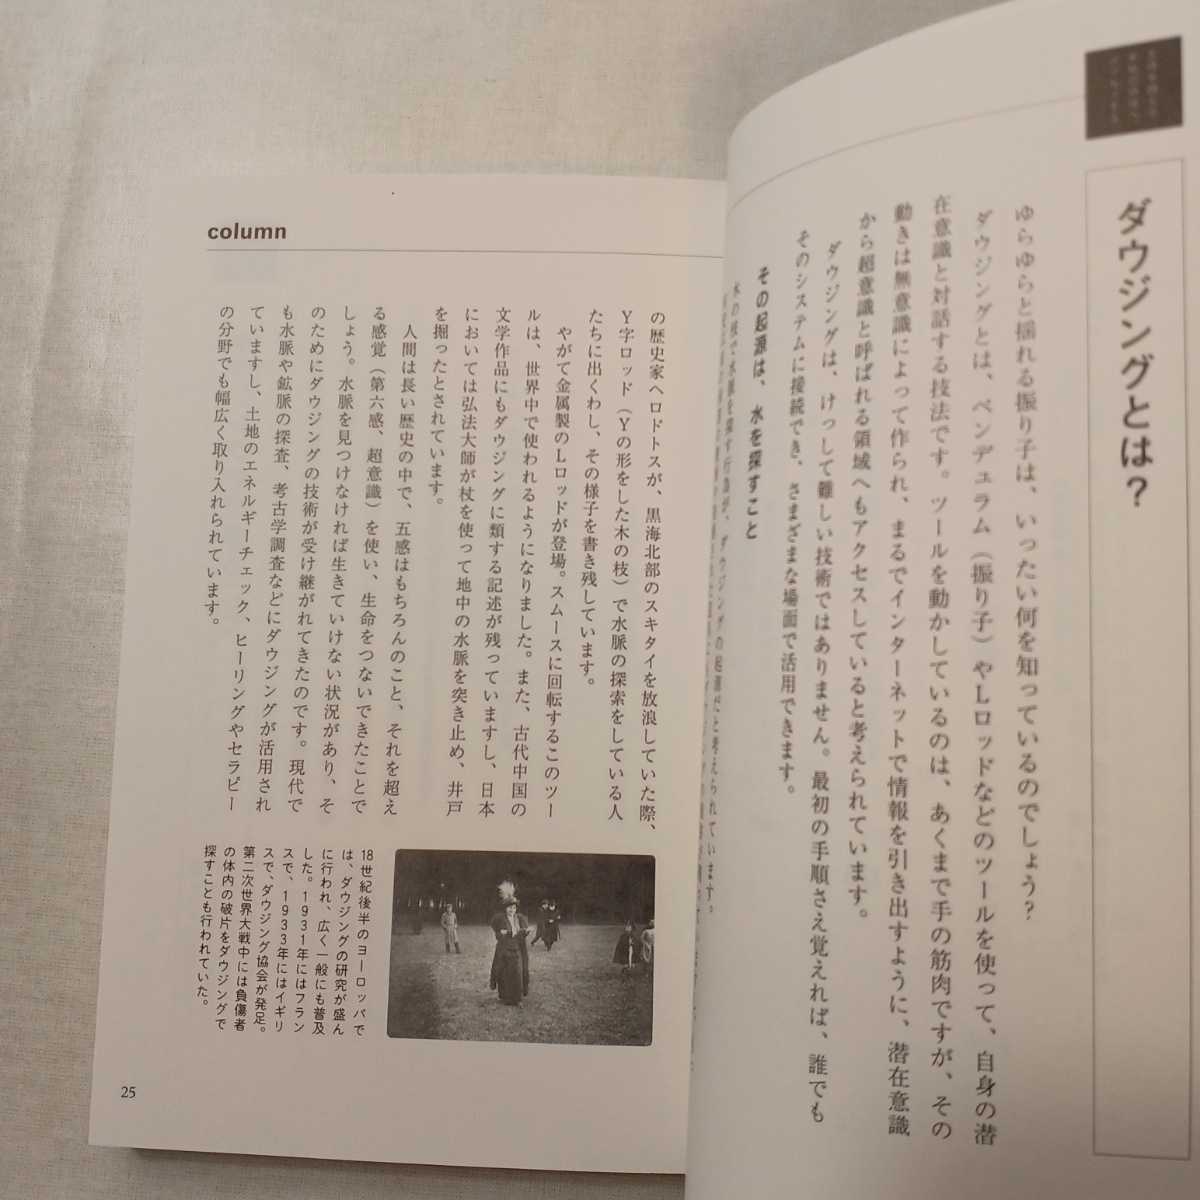 ダウジングとは？
ゆらゆらと揺れる振り子は、いったい何を知っているのでしょう？
ダウジングとは、ペンデュラム（振り子）やLロッドなどのツールを使って、自身の潜
在意識と対話する技法です。ツールを動かしているのは、あくまで手の筋肉ですが、その
動きは無意識によって作られ、まるでインターネットで情報を引き出すように、潜在意識
から超意識と呼ばれる領域へもアクセスしていると考えられています。
ダウジングは、けっして難しい技術ではありません。最初の手順さえ覚えれば、誰でも
そのシステムに接続でき、さまざまな場面で活用できます。
その起源は、水を探すこと
木の枝で水脈を探す行為が、ダウジングの起源だと考えられています。
column
の歴史家ヘロドトスが、黒海北部のスキタイを放浪していた際、
Y字ロッド（Yの形をした木の枝）で水脈の探索をしている人
たちに出くわし、その様子を書き残しています。
やがて金属製のLロッドが登場。スムースに回転するこのツー
ルは、世界中で使われるようになりました。また、古代中国の
文学作品にもダウジングに類する記述が残っていますし、日本
においては弘法大師が杖を使って地中の水脈を突き止め、井戸
を掘ったとされています。
人間は長い歴史の中で、五感はもちろんのこと、それを超え
る感覚（第六感、超意識）を使い、生命をつないできたことで
しょう。水脈を見つけなければ生きていけない状況があり、そ
のためにダウジングの技術が受け継がれてきたのです。現代で
も水脈や鉱脈の探査、考古学調査などにダウジングが活用され
ていますし、土地のエネルギーチェック、ヒーリングやセラピー
の分野でも幅広く取り入れられています。
18世紀後半のヨーロッパで
は、ダウジングの研究が盛ん
に行われ、広く一般にも普及
した。1931年にはフラン
スで、1933年にはイギリ
スで、ダウジング協会が発足。
第二次世界大戦中には負傷者
の体内の破片をダウジングで
探すことも行われていた。
25